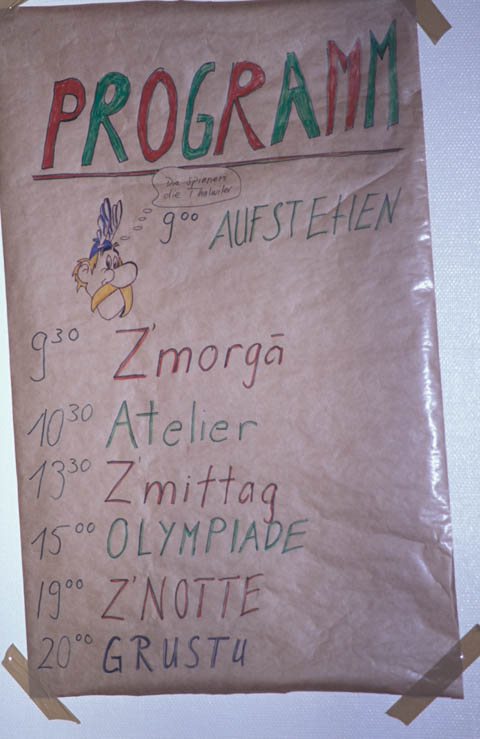 PROGRAMM
Die spinnen
die Thalwiler
9⁰⁰ AUFSTEHEN
9³⁰ Z'morgā
10³⁰ Atelier
13³⁰ Z'mittag
15⁰⁰ OLYMPIADE
19⁰⁰ Z'NOTTE
20⁰⁰ GRUSTU